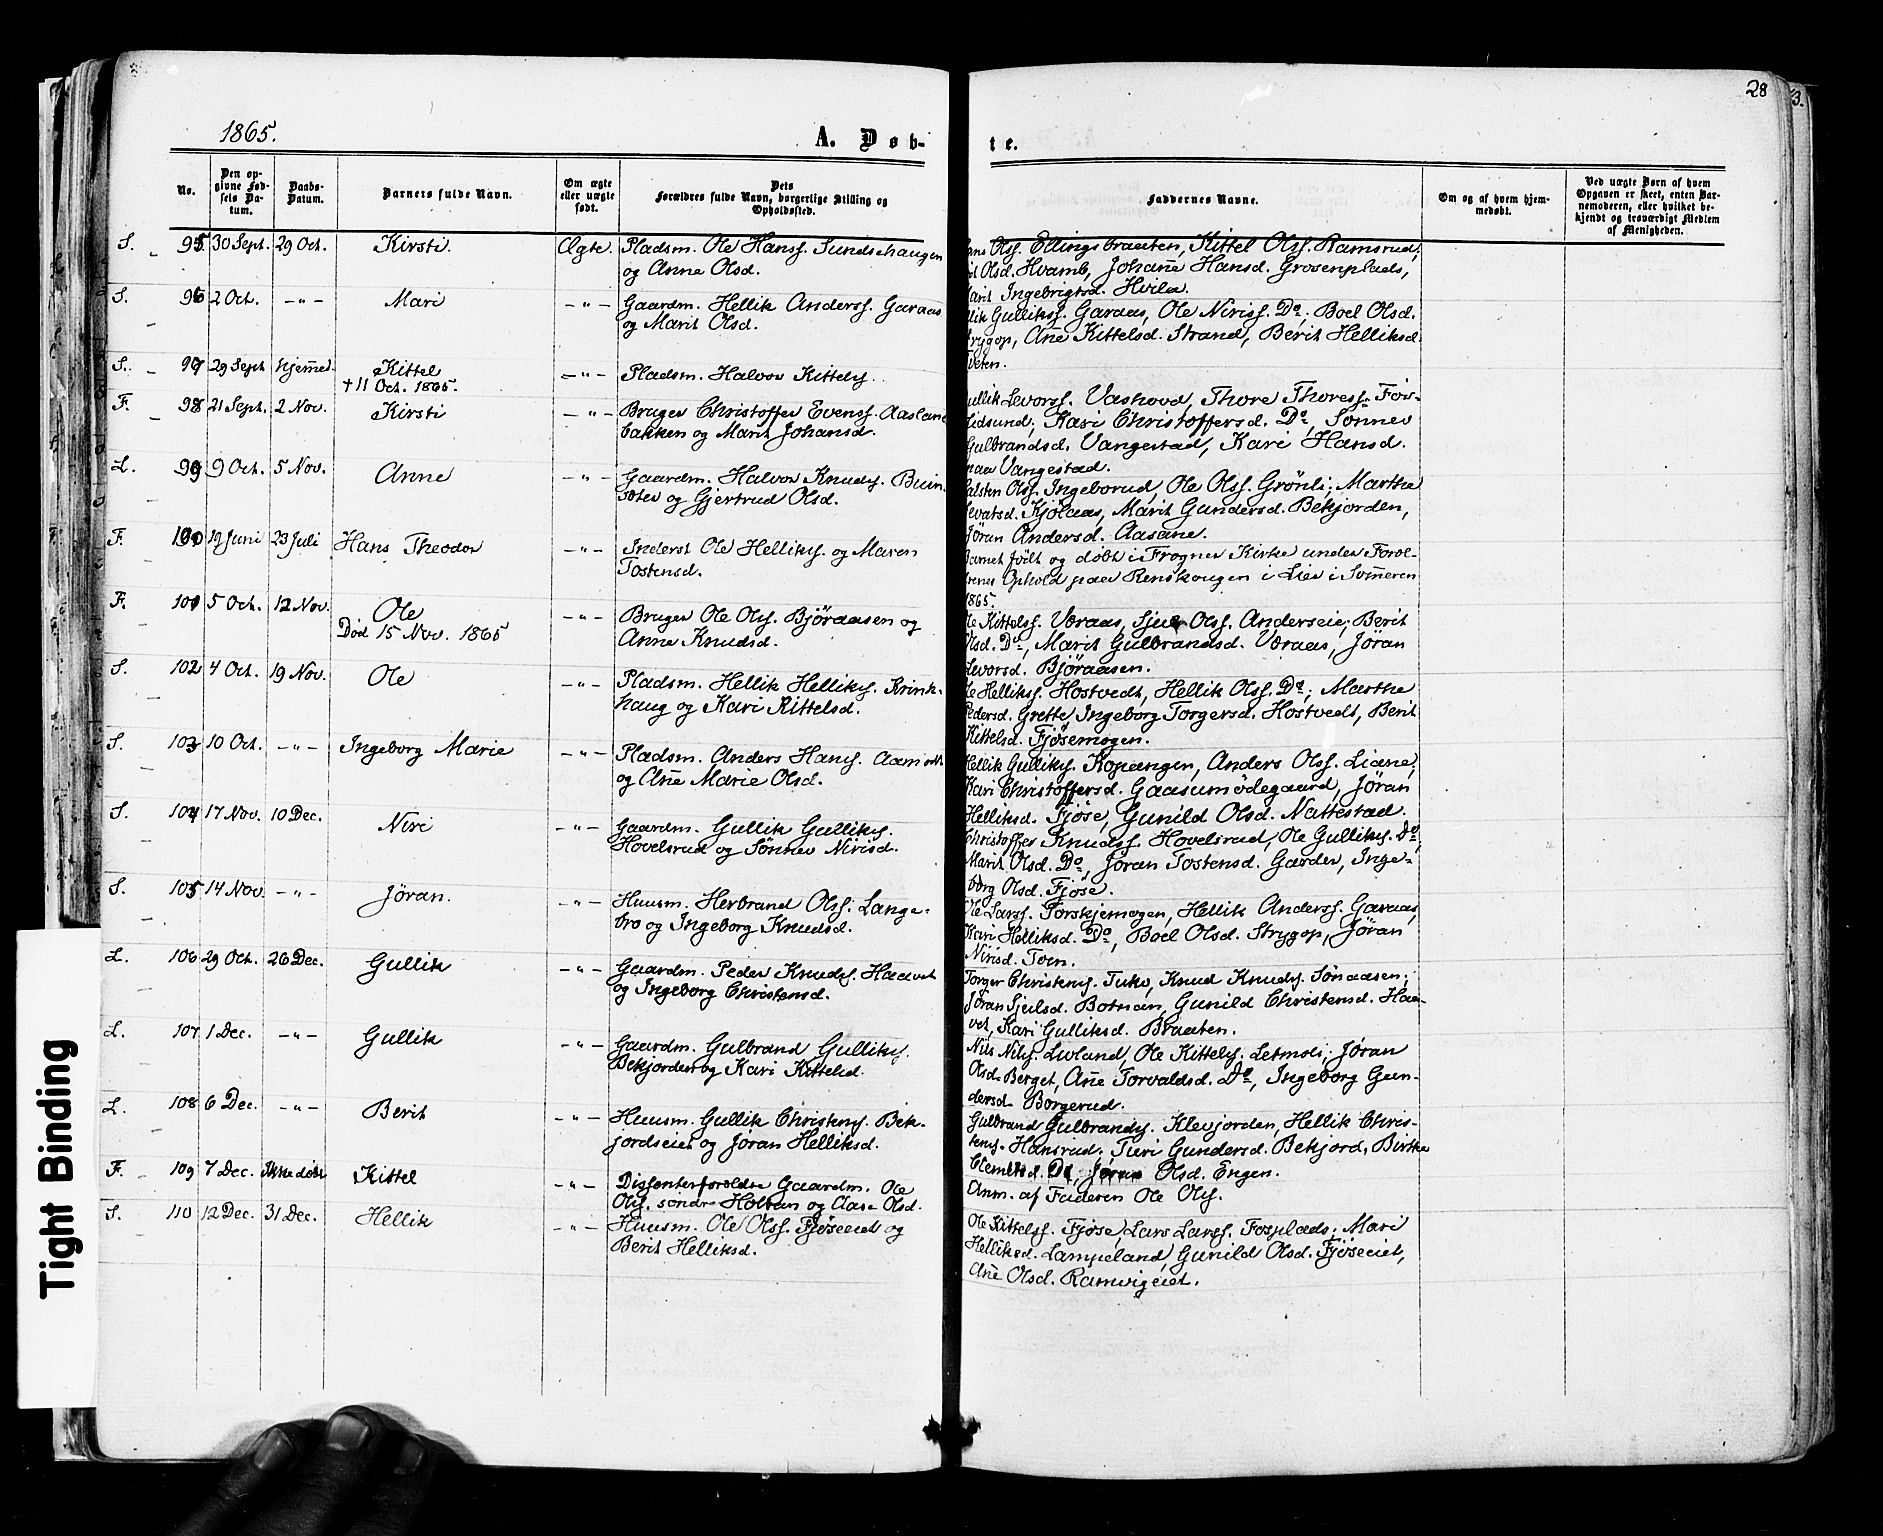 28
3.
1865.
A. Døb-
te.
No.
Den op-
givne Fød-
sels Da-
tum.
Daabs-
Datum.
Barnets fulde Navn.
Om ægte
eller uægte
født.
Dets
Forældres fulde Navn, borgerlige Stilling og
Opholdssted.
Faddernes Navne.
Om og af hvem hjem-
medøbt.
Ved uægte Børn af hvem
Opgaven er skeet, enten Bar-
nemoderen, eller hvilket be-
kjendt og troværdigt Medlem
af Menigheden.
S. 95 30 Sept. 29 Oct. Kirsti. Ægte. Pladsm. Ole Hanss. Sundsehaugen
og Anne Olsd.
Olss. Ellingsbraaten, Kittel Olss. Ramsrud;
Olsd. Hvamb, Johañe Hansd. Grosenplads,
Marit Ingebrigtsd. Hvila.
S. 96 2 Oct. -"- Mari -"- Gaardm. Hellik Anderss. Garaas
og Marit Olsd.
Gulliks. Garaas, Ole Niriss. Do; Boel Olsd.
Strygop, Añe Kittelsd. Strand, Berit Helliksd.
Tveten.
S. 97 29 Sept hjemme. Kittel
† 11 Oct. 1865.
-"- Pladsm. Halvor Kittels.
F. 98 21 Sept. 2 Nov. Kirsti -"- Bruger Christoffer Evenss. Aasland-
bakken og Marit Johansd.
Gullik Levorss. Vashovd, Thore Thoress. Fos-
lidsund; Kari Christoffersd. Do, Sønnev
Gulbrandsd. Vangestad, Kari Hansd.
paa Vangestad.
L. 99 9 Oct. 5 Nov. Anne -"- Gaardm. Halvor Knuds. Buin-
og Gjertrud Olsd.
Olss. Ingeborud, Ole Olss. Grønli; Marthe
Kjølaas, Marit Gundersd. Bekjorden,
Jøran Andersd. Aasane.
F. 100 19 Juni 23 Juli Hans Theodor -"- Inderst Ole Helliks. og Maren
Tostensd.
Barnet født og døbt i Frogner Kirke under Foræl-
drenes Ophold paa Renskougen i Lier i Sommeren
1865.
F. 101 5 Oct. 12 Nov. Ole
Død 15 Nov. 1865
-"- Bruger Ole Ols. Bjøraasen og
Anne Knudsd.
Ole Kittelss. Væraas, Sjul Olss. Anderseie; Berit
Olsd. Do, Marit Gulbrandsd. Væraas, Jøran
Levorsd. Bjøraasen.
S. 102 4 Oct. 19 Nov. Ole -"- Pladsm. Hellik Helliks. Krink-
haug og Kari Kittelsd.
Ole Hellikss. Hostvedt, Hellik Olss. Do; Marthe
Pedersd. Grette, Ingeborg Torgersd. Hostvedt, Berit
Kittelsd. Fjøsemogen.
S. 103 10 Oct. -"- Ingeborg Marie -"- Pladsm. Anders Hans. Aamodt
og Añe Marie Olsd.
Hellik Gulliks. Kopangen, Anders Olss. Liane,
Kari Christoffersd. Gaasumødegaard, Jøran
Helliksd. Fjøse, Gunild Olsd. Nattestad.
S. 104 17 Nov. 10 Dec. Niri -"- Gaardm. Gullik Gulliks.
Hovelsrud og Sønnev Nirisd.
Christoffer Knudss. Hovelsrud, Ole Gulliks. Do,
Marit Olsd. Do, Jøran Tostensd. Garder, Inge-
borg Olsd. Fjøse.
S. 105 14 Nov. -"- Jøran. -"- Huusm. Herbrand Olss. Lange-
bro og Ingeborg Knudsd.
Ole Larss. Torskjemogen, Hellik Anderss. Garaas,
Kari Helliksd. Do, Boel Olsd. Strygop, Jøran
Nirisd. Toen.
L. 106 29 Oct. 26 Dec. Gullik -"- Gaardm. Peder Knuds. Haavet
og Ingeborg Christensd.
Torger Christens. Tukv, Knud Knuds. Sønaasen;
Jøran Sjeilsd. Botnan, Gunild Christensd. Haa-
vet, Kari Gulliksd. Braaten.
L. 107 1 Dec. -"- Gullik -"- Gaardm. Gulbrand Gulliks.
Bekjorden og Kari Kittelsd.
Nils Nils. Lvland, Ole Kittels. Letmoli; Jøran
Olsd. Berget, Añe Torvaldsd. Do, Ingeborg Gun-
dersd. Borgerud.
L. 108 6 Dec. -"- Berit -"- Huusm. Gullik Christens. Bek-
jordseie og Jøran Helliksd.
Gulbrand Gulbrands. Klevjorden, Hellik Chris-
tens. Hansrud; Tieri Gundersd. Bekjord, Birthe
Clemitsd. Do, Jøran Olsd. Engen.
F. 109 7 Dec. Ikke døbt Kittel -"- Dissenterforældre Gaardm. Ole
Ols. søndre Holtan og Aase Olsd.
Anm. af Faderen Ole Ols.
S. 110 12 Dec. 31 Dec. Hellik -"- Huusm. Ole Olss. Fjøseeiet og
Berit Helliksd.
Ole Kittelss. Fjøse, Lars Larss. Fosplads; Mari
Helliksd. Lampeland, Gunild Olsd. Fjøseeiet,
Añe Olsd. Ramvigeiet.
Tight Binding